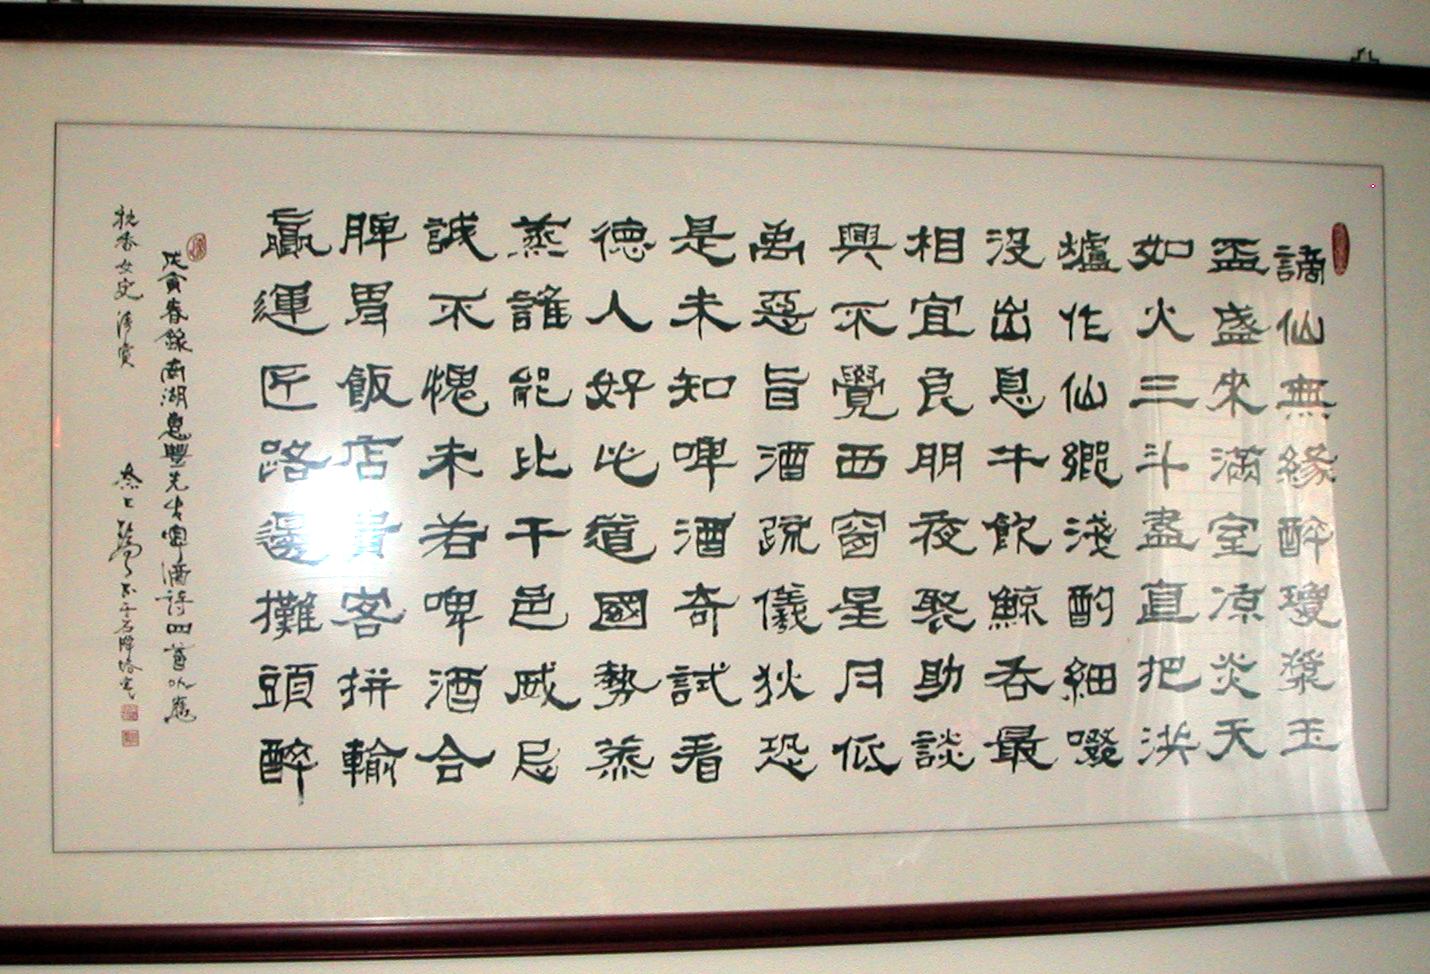 謫仙無緣醉瓊漿玉
盃盛來滿室涼炎天
如火三斗盡直把洪
爐作仙鄉淺酌細啜
沒出息牛飲鯨吞最
相宜良朋夜聚助談
興不覺西窗星月低
禹惡旨酒疏儀狄恐
是未知啤酒奇試看
德人好此道國勢蒸
蒸誰能比干邑威忌
誠不愧未若啤酒合
脾胃飯店貴客拼輸
贏運匠路邊攤頭醉
戊寅春錄南湖惠豐先生啤酒詩四首以應
女史清賞